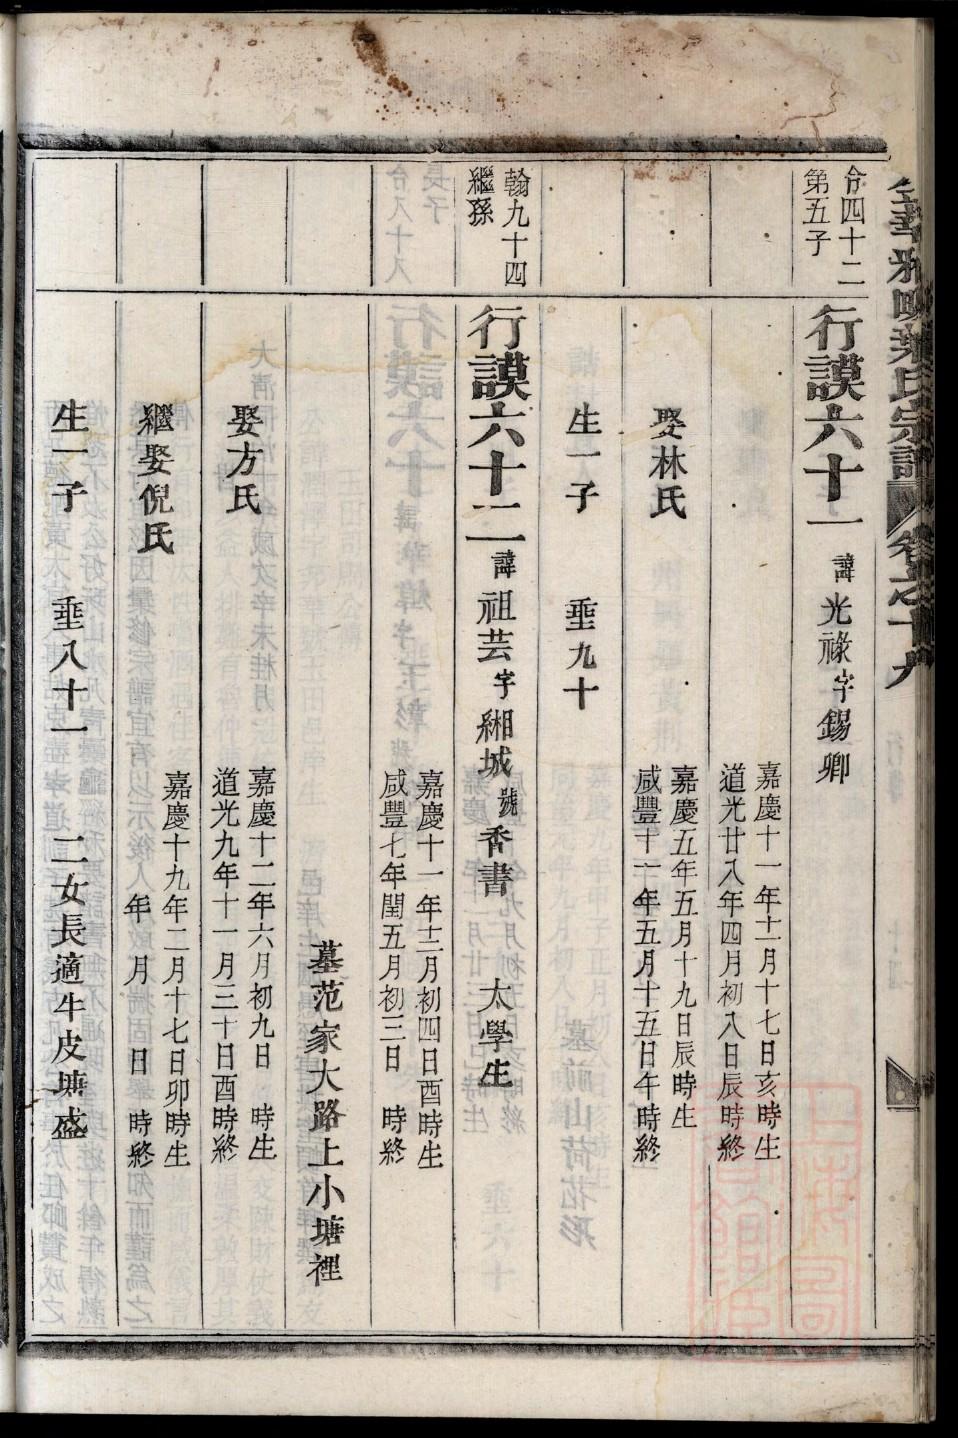 葉氏宗譜 卷之十九
合四十二
第五子
行謨六十一 諱光祿字錫卿
嘉慶十一年十一月十七日亥時生
道光廿八年四月初八日辰時終
娶林氏
嘉慶五年五月十九日辰時生
咸豐十一年五月十五日午時終
生一子 垂九十
翰九十四
繼孫
行謨六十二 諱祖芸字緗城號香書 太學生
嘉慶十一年十二月初四日酉時生
咸豐七年閏五月初三日 時終
墓范家大路上小塘裡
娶方氏
嘉慶十二年六月初九日 時生
道光九年十一月三十日酉時終
繼娶倪氏
嘉慶十九年二月十七日卯時生
年 月 日 時終
生一子 垂八十一 二女長適牛皮塘盛